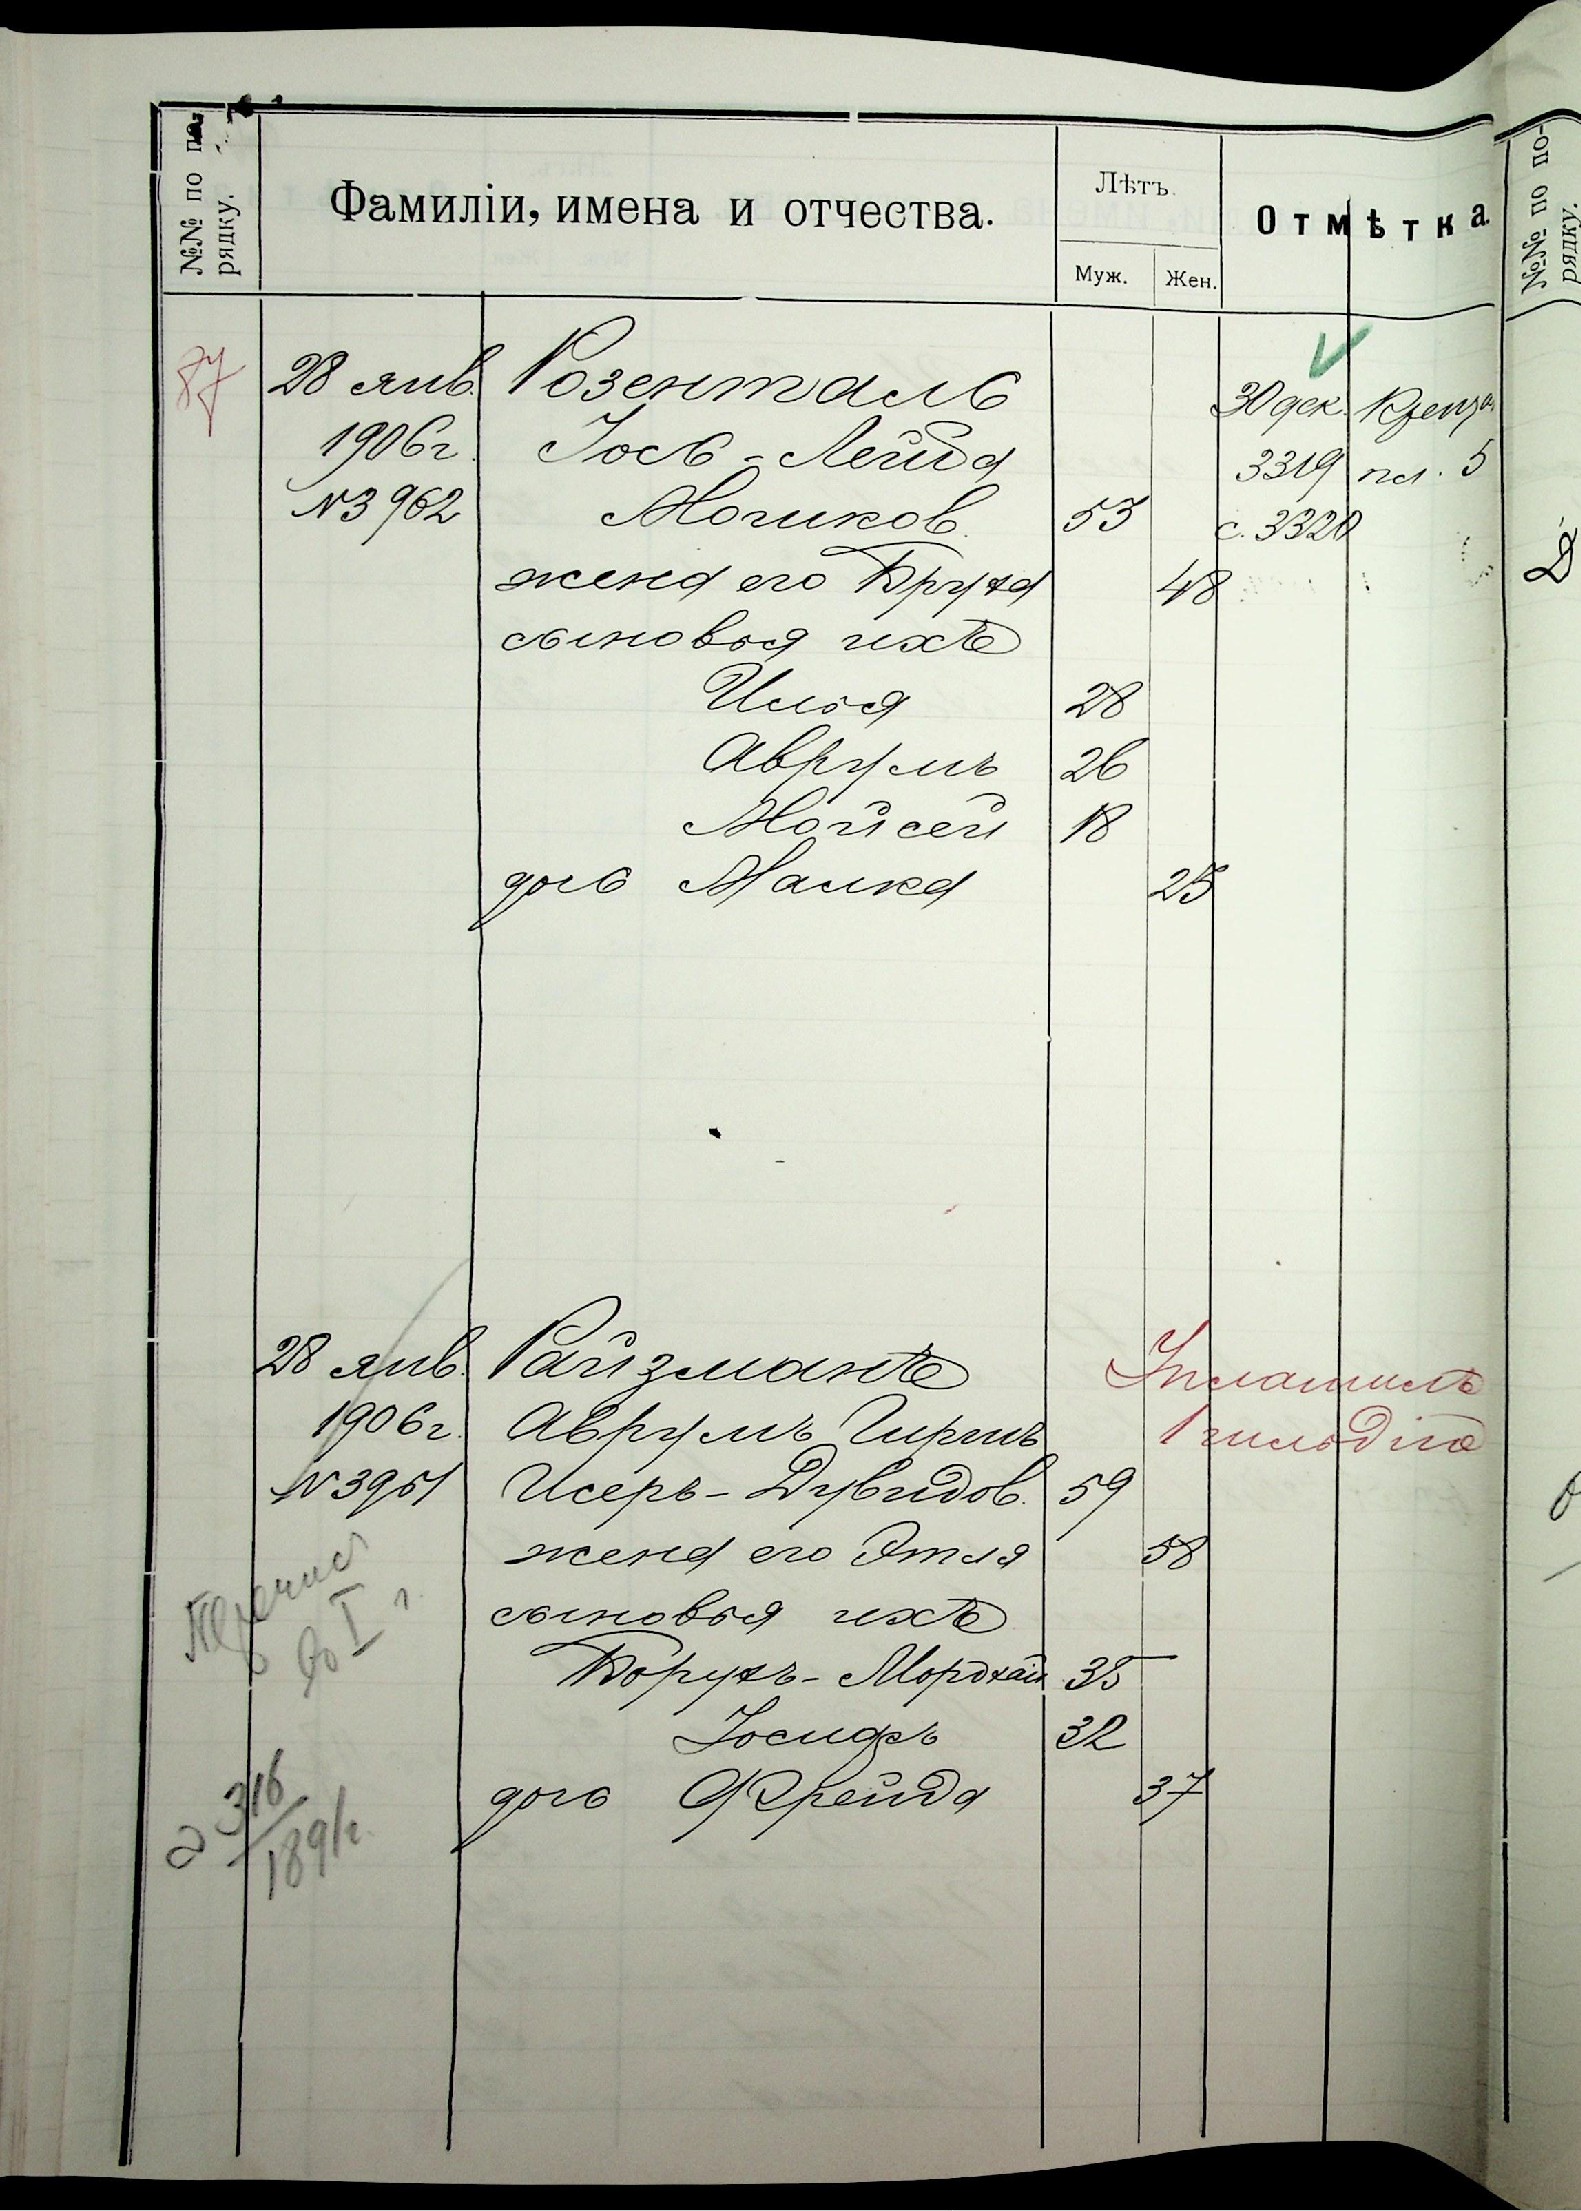 №№ по по-
рядку.
Фамиліи, имена и отчества.
Лѣтъ.
Муж. Жен.
Отмѣтка.
№№ по по-
рядку.
87 28 янв. Розенталь 30 дек.
1906 г. Іось-Лейба 3319 пл. 5
№ 3962 Мошков. 53 с. 3320
жена его Бруха 48
сыновья ихъ
Илья 28
Аврумъ 26
Мойсей 18
дочь Малка 25
28 янв. Райзманъ Уплатилъ
1906 г. Аврумъ Гиршъ 1 гильдію
№ 3951 Исеръ-Дувидов. 59
жена его Этля 58
сыновья ихъ
Борухъ-Мордхай 35
Іосифъ 32
дочь Фрейда 37
Перечис
во I г.
316
1891 г.